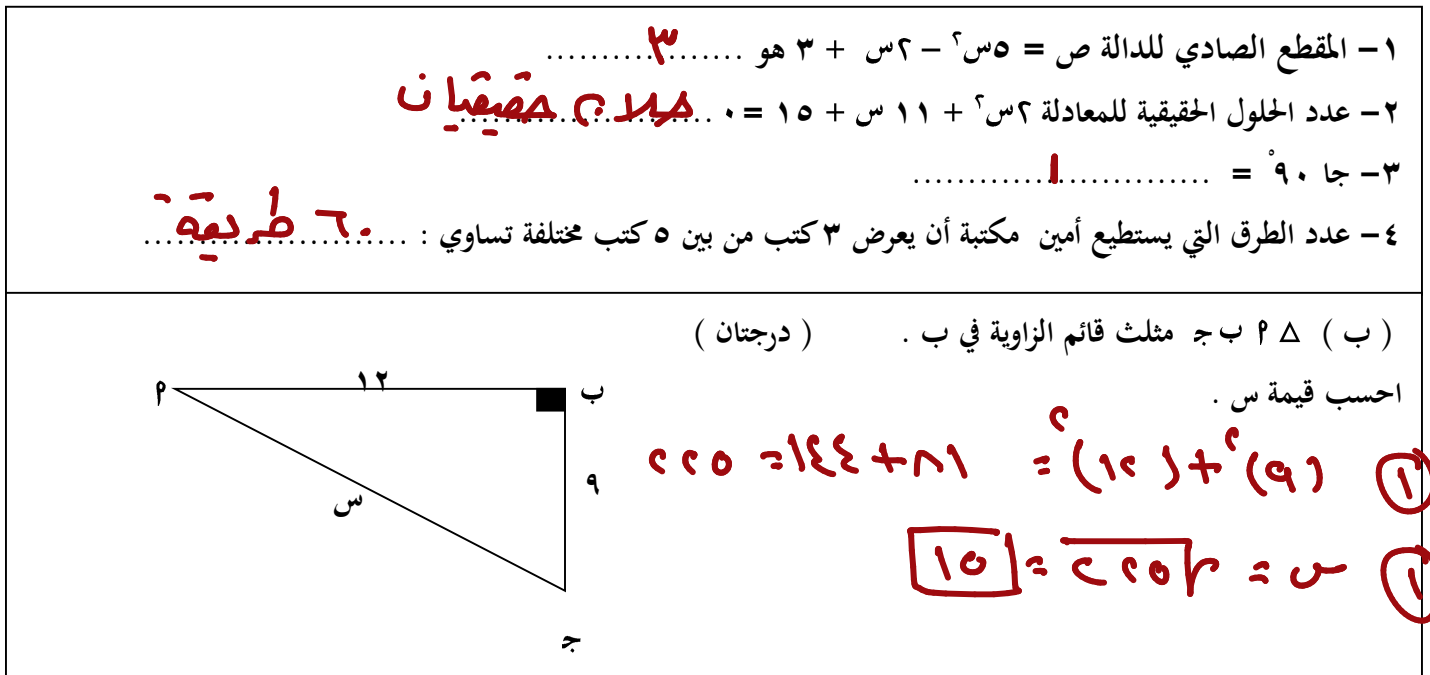 ١- المقطع الصادي للدالة ص = ٥س٢ - ٢س + ٣ هو ........٣........
٢- عدد الحلول الحقيقية للمعادلة ٢س٢ + ١١ س + ١٥ = ٠ ........حلان حقيقيان
٣- جا ٩٠° = ............١............
٤- عدد الطرق التي يستطيع أمين مكتبة أن يعرض ٣ كتب من بين ٥ كتب مختلفة تساوي : ....٦٠ طريقة....
( ب ) △ ٩ ب جـ مثلث قائم الزاوية في ب . ( درجتان )
احسب قيمة س .
م
١٢
ب
٩
س
جـ
١ (٩)٢ + (١٢)٢ = ٨١ + ١٤٤ = ٢٢٥
١ س = √٢٢٥ = ١٥